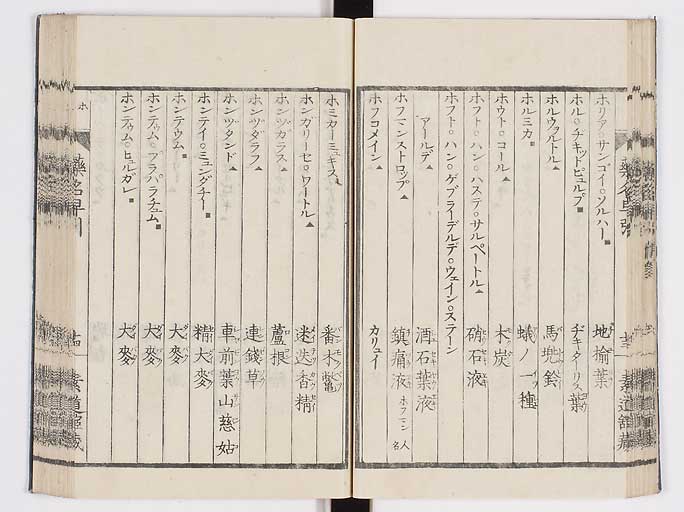 ホリア○サンゴイ○ソルハー■ 地榆葉
ホル○ヂキッドビュルプ■ ヂキターリス葉
ホルウァルトル▲ 馬兜鈴
ホルミカ■ 蟻ノ一種
ホウト○コール▲ 木炭
ホフト○ハン○ハステ○サルペートル▲ 硝石液
ホフト○ハン○ゲブライデルデ○ウェイン○ステーン
アールデ▲ 酒石葉液
ホフマンストロップ▲ 鎮痛液 ホフマン人名
ホフコメイン▲ カリュイ
ホミカーミュキス▲ 番木鼈
ホンガリーセ○ワートル▲ 迷迭香精
ホンヅガラス▲ 蘆根
ホンヅダラフ▲ 連錢草
ホンヅタンド▲ 車前葉山慈姑
ホンテイ○ミュンダチー■ 精大麥
ホンテウム■ 大麥
ホンテウム○プラパラチュム■ 大麥
ホンテウム○ヒュルガレ■ 大麥
ホ
藥名早引